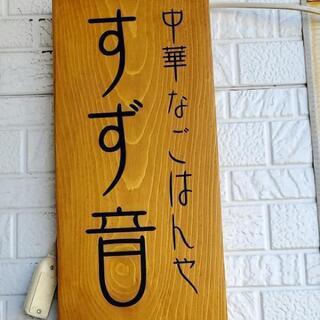 中華なごはんや
すず音